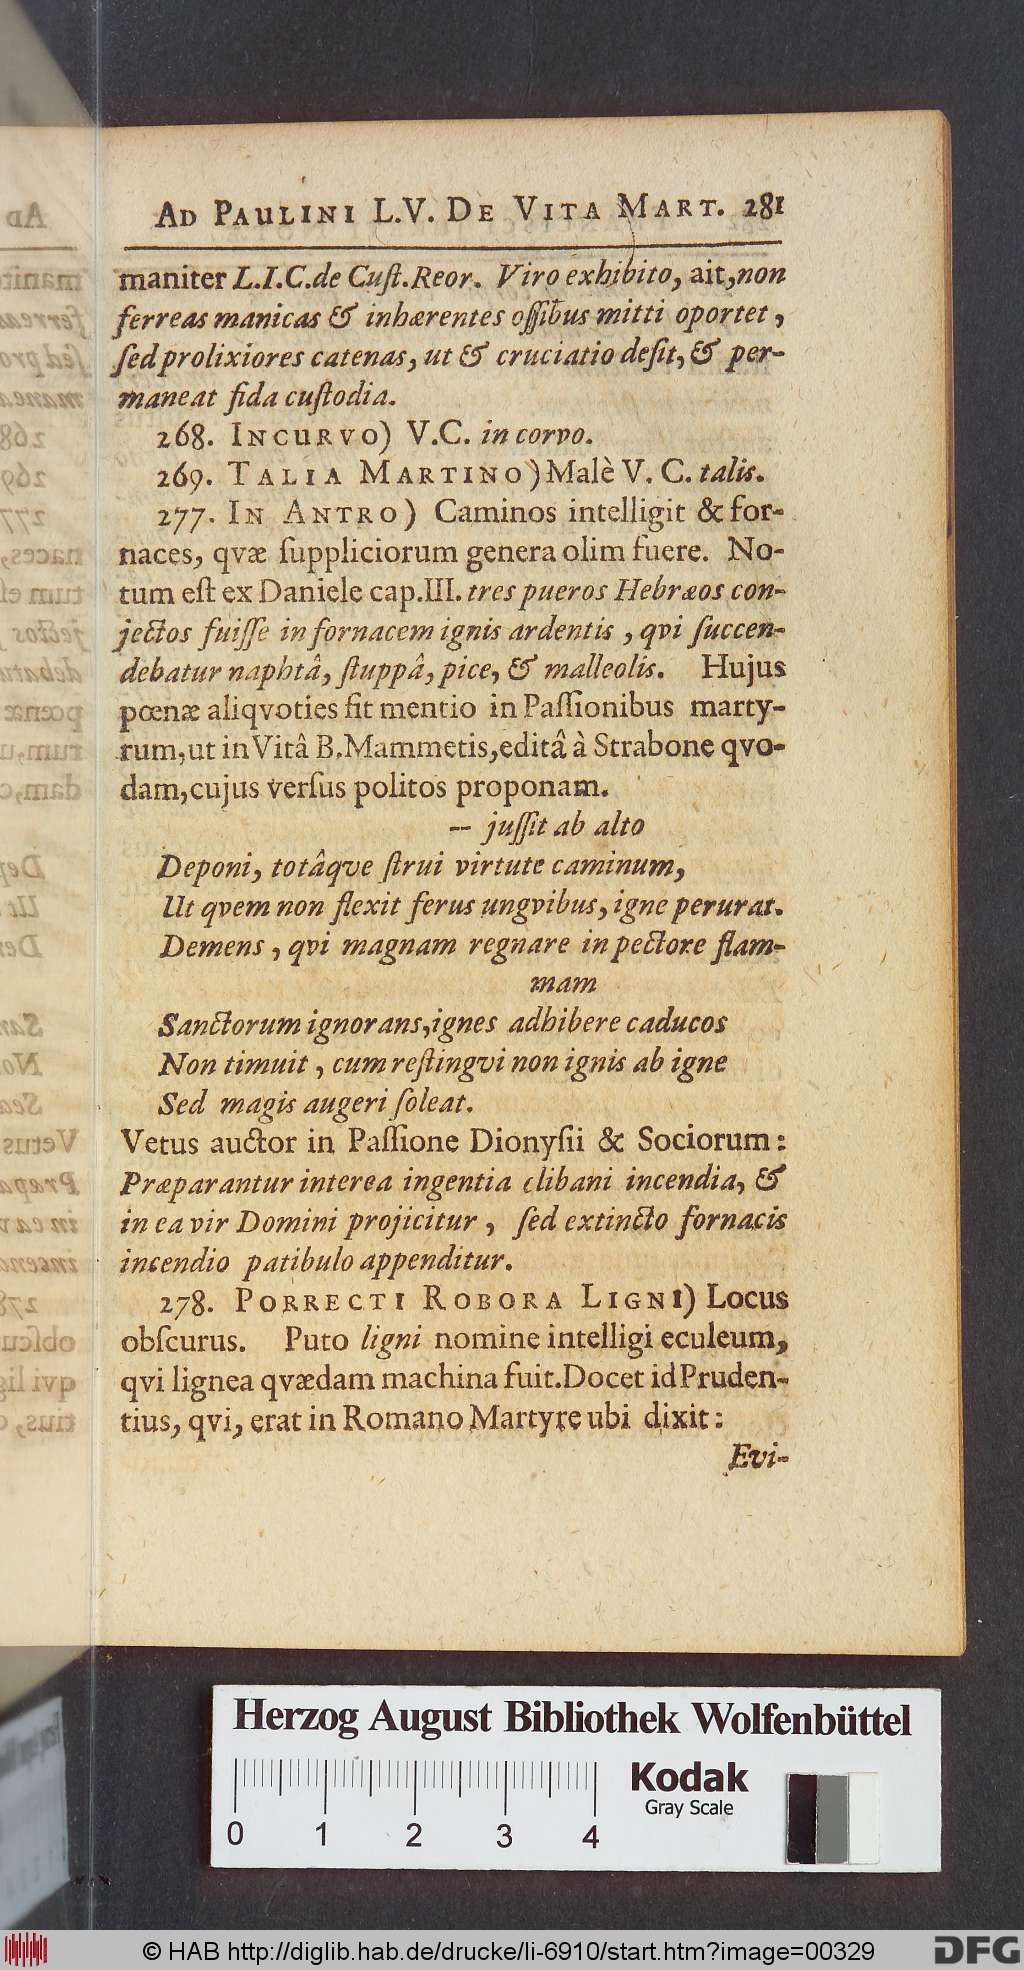 AD PAULINI L.V. DE VITA MART. 281
maniter L.I.C.de Cuſt.Reor. Viro exhibito, ait,non
ferreas manicas & inhærentes oſſibus mitti oportet,
ſed prolixiores catenas, ut & cruciatio deſit, & per-
maneat fida cuſtodia.
268. INCURVO) V.C. in corvo.
269. TALIA MARTINO) Malè V. C. talis.
277. IN ANTRO) Caminos intelligit & for-
naces, qvæ ſuppliciorum genera olim fuere. No-
tum eſt ex Daniele cap.III. tres pueros Hebræos con-
jectos fuiſſe in fornacem ignis ardentis, qvi ſuccen-
debatur naphtâ, ſtuppâ, pice, & malleolis. Hujus
pœnæ aliqvoties fit mentio in Paſſionibus marty-
rum, ut in Vitâ B.Mammetis, editâ à Strabone qvo-
dam, cujus verſus politos proponam.
-- juſſit ab alto
Deponi, totâqve ſtrui virtute caminum,
Ut qvem non flexit ferus ungvibus, igne perurat.
Demens, qvi magnam regnare in pectore flam-
mam
Sanctorum ignorans, ignes adhibere caducos
Non timuit, cum reſtingvi non ignis ab igne
Sed magis augeri ſoleat.
Vetus auctor in Paſſione Dionyſii & Sociorum:
Præparantur interea ingentia clibani incendia, &
in ea vir Domini projicitur, ſed extincto fornacis
incendio patibulo appenditur.
278. PORRECTI ROBORA LIGNI) Locus
obſcurus. Puto ligni nomine intelligi eculeum,
qvi lignea qvædam machina fuit. Docet id Pruden-
tius, qvi, erat in Romano Martyre ubi dixit:
Evi-
Herzog August Bibliothek Wolfenbüttel
Kodak
Gray Scale
0 1 2 3 4
© HAB http://diglib.hab.de/drucke/li-6910/start.htm?image=00329
DFG